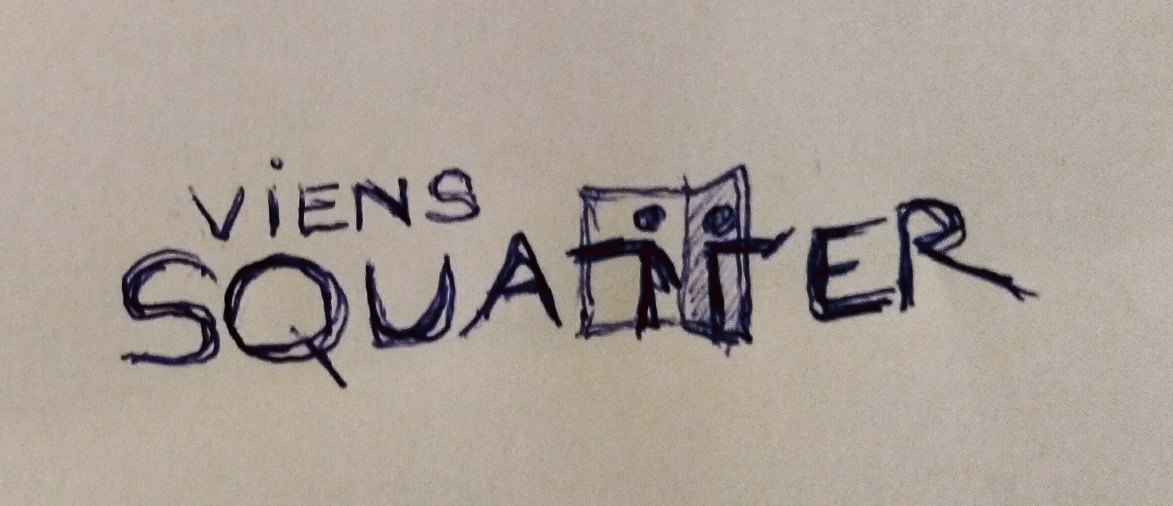 ViENS
SQUATTER